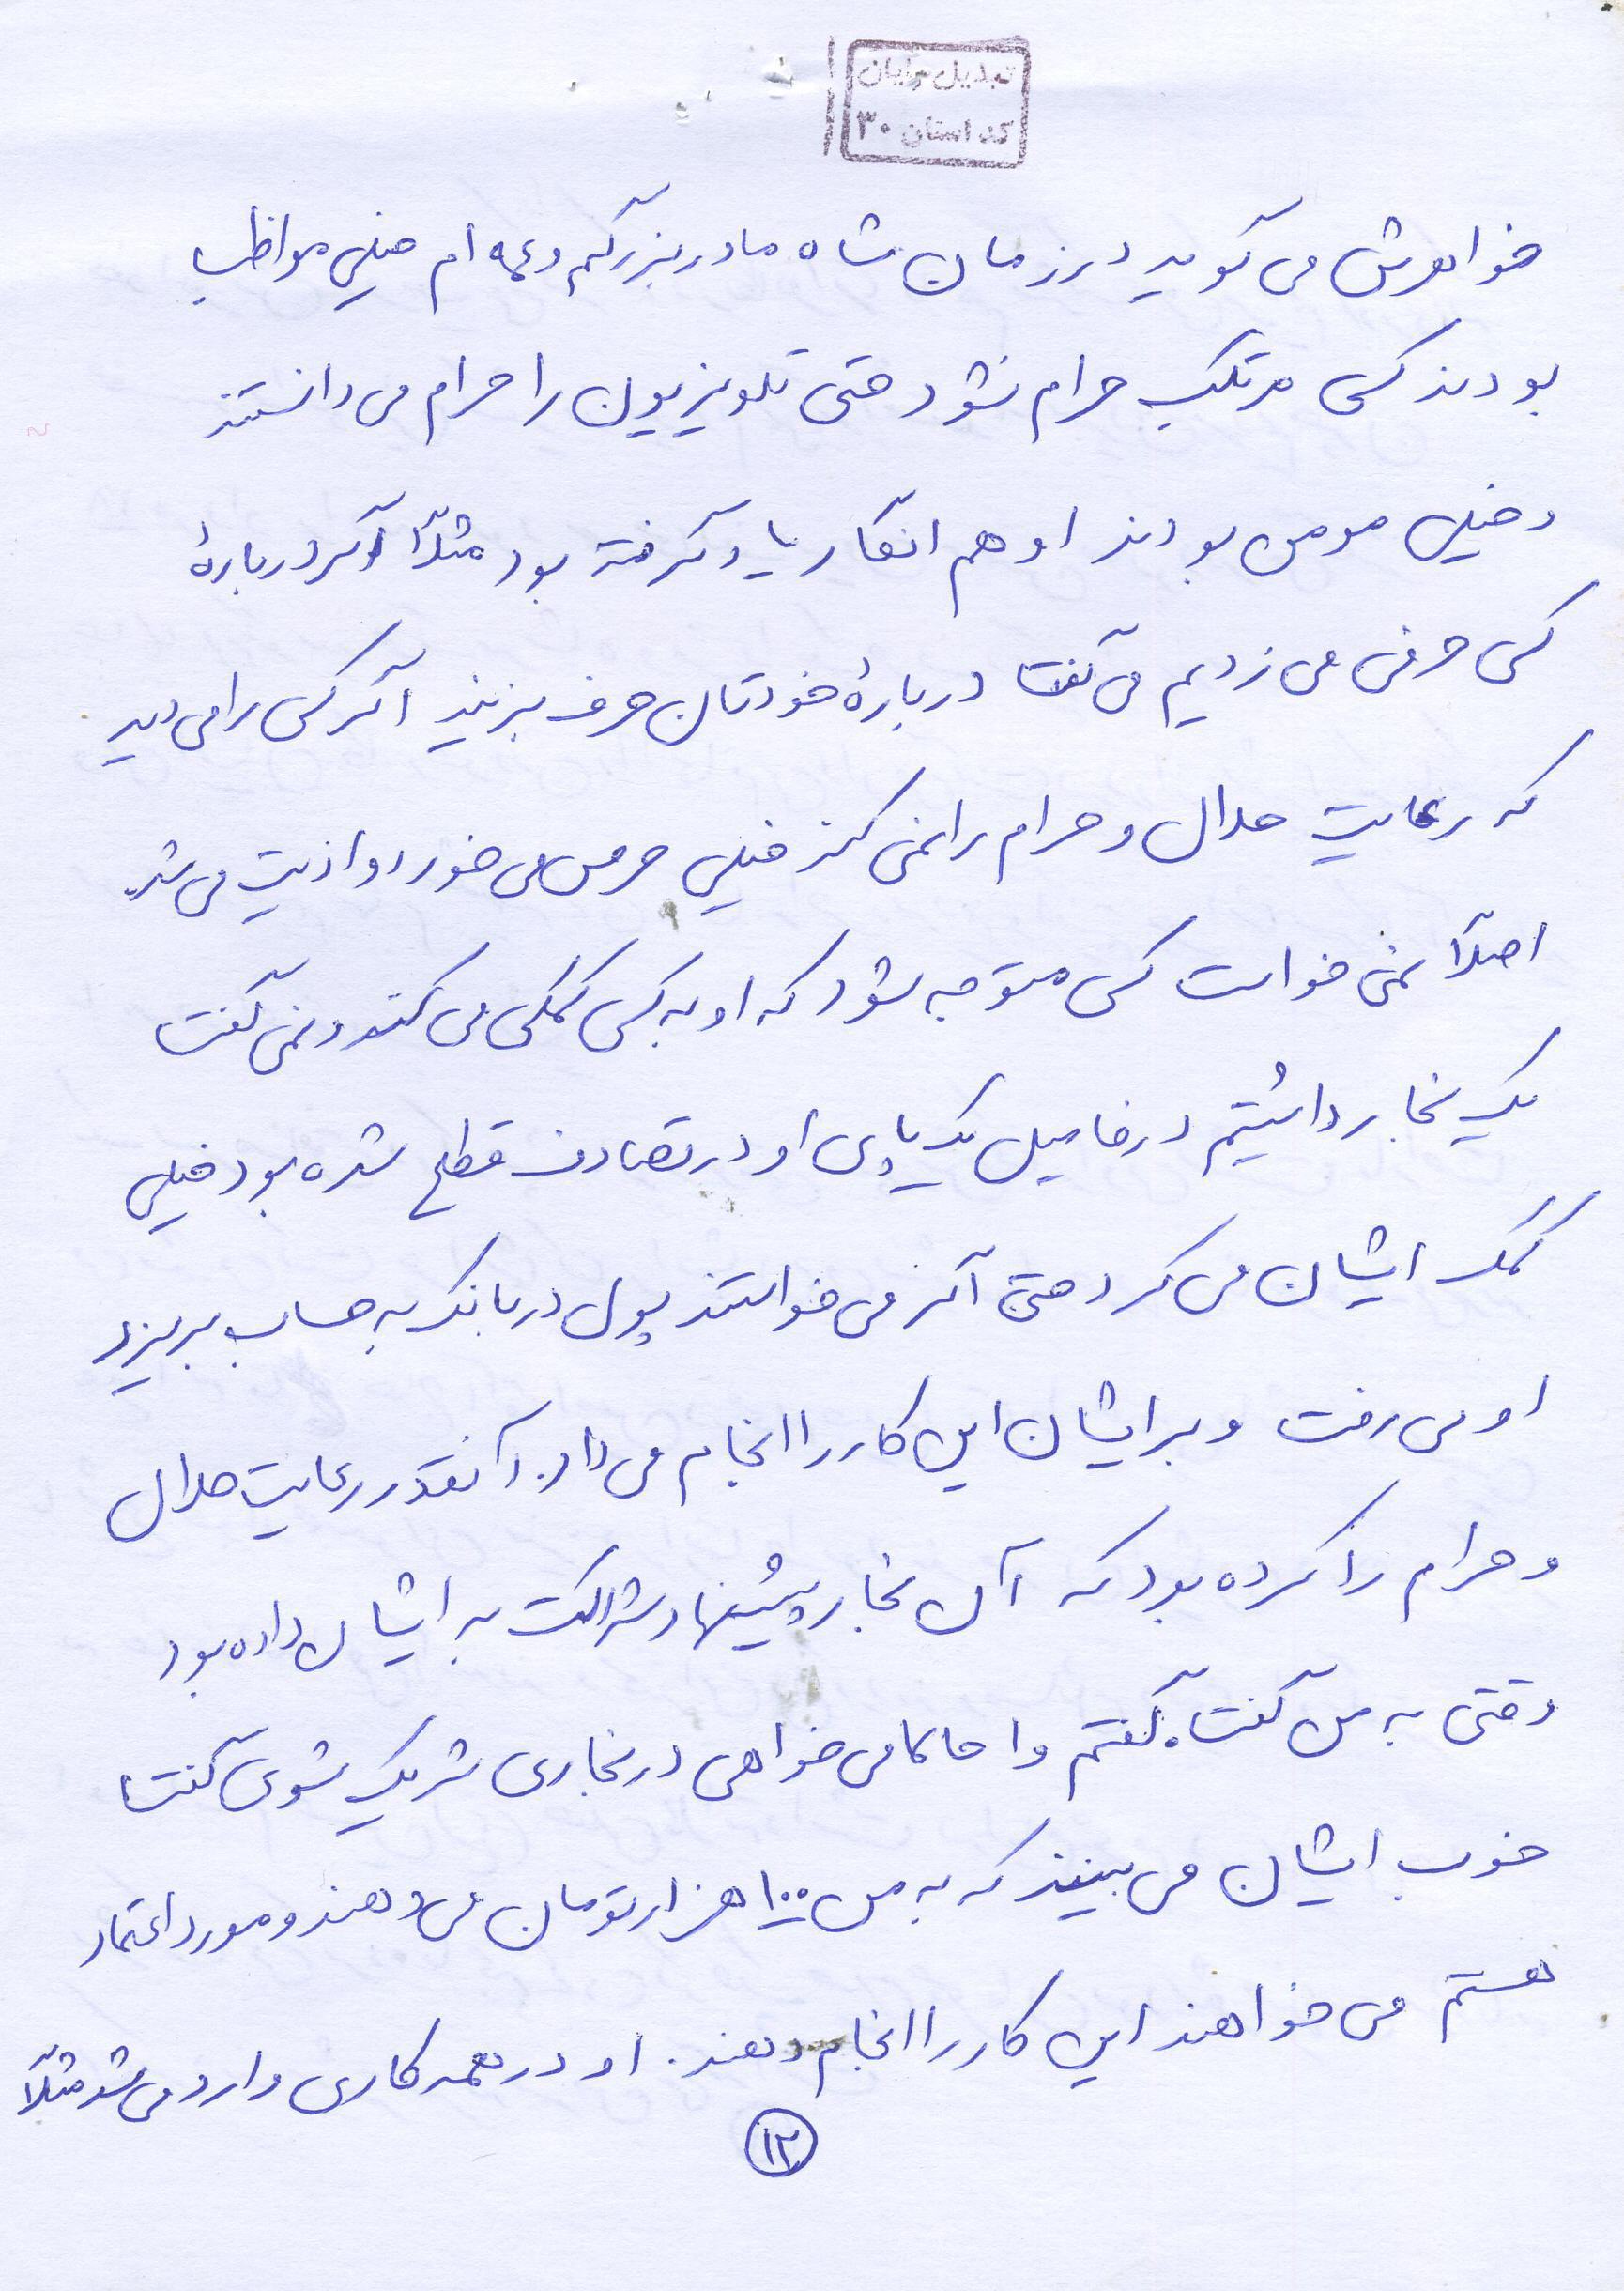 تبدیل رایان
کد استان ۳۰
خواهرش می گوید در زمان شاه مادربزرگم و عمه ام خیلی مواظب
بودند کسی مرتکب حرام نشود حتی تلویزیون را حرام می دانستند
و خیلی مومن بودند او هم انگار یاد گرفته بود مثلاً اگر دربارهٔ
کسی حرفی می زدیم می گفت دربارهٔ خودتان حرف بزنید اگر کسی را می دید
که رعایت حلال و حرام را نمی کند خیلی حرص می خورد و اذیت می شد.
اصلاً نمی خواست کسی متوجه بشود که او به کسی کمکی می کند و نمی گفت
یک نجار داشتیم در فامیل یک پای او در تصادف قطع شده بود خیلی
کمک ایشان می کرد حتی اگر می خواستند پول در بانک به حساب بریزد
او می رفت و برایشان این کار را انجام می داد. آنقدر رعایت حلال
و حرام را کرده بود که آن نجار پیشنهاد شراکت به ایشان داده بود
وقتی به من گفت. گفتم وا حالا می خواهی در نجاری شریک شوی گفت
خوب ایشان می بینند که به من ۱۰۰ هزار تومان می دهند و مورد اعتماد
هستم می خواهند این کار را انجام دهند. او در همه کاری وارد می شد مثلاً
۱۲